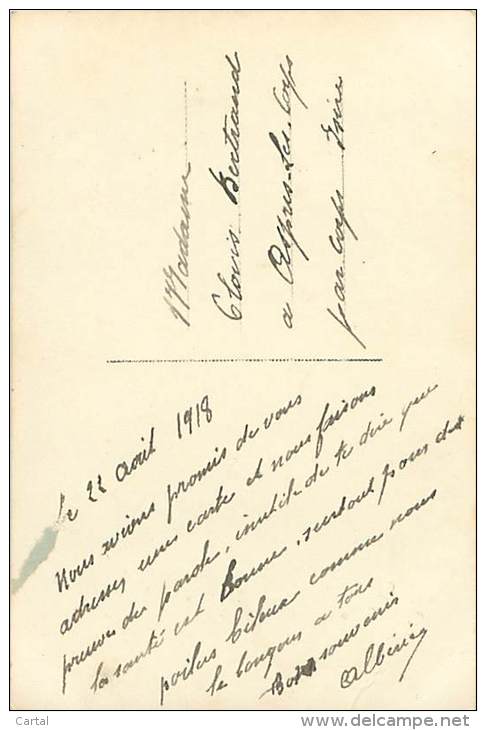 Madame
Clovis Bertrand
a Aspres-les-Corps
par Corps Isère
Le 22 Août 1918
Nous avions promis de vous
adresser une carte et nous faisons
preuve de parole, inutile de te dire que
la santé est bonne, surtout pour des
poilus bileux comme nous
le
a tous
Bons souvenirs
Albéric
Cartal
www.delcampe.net